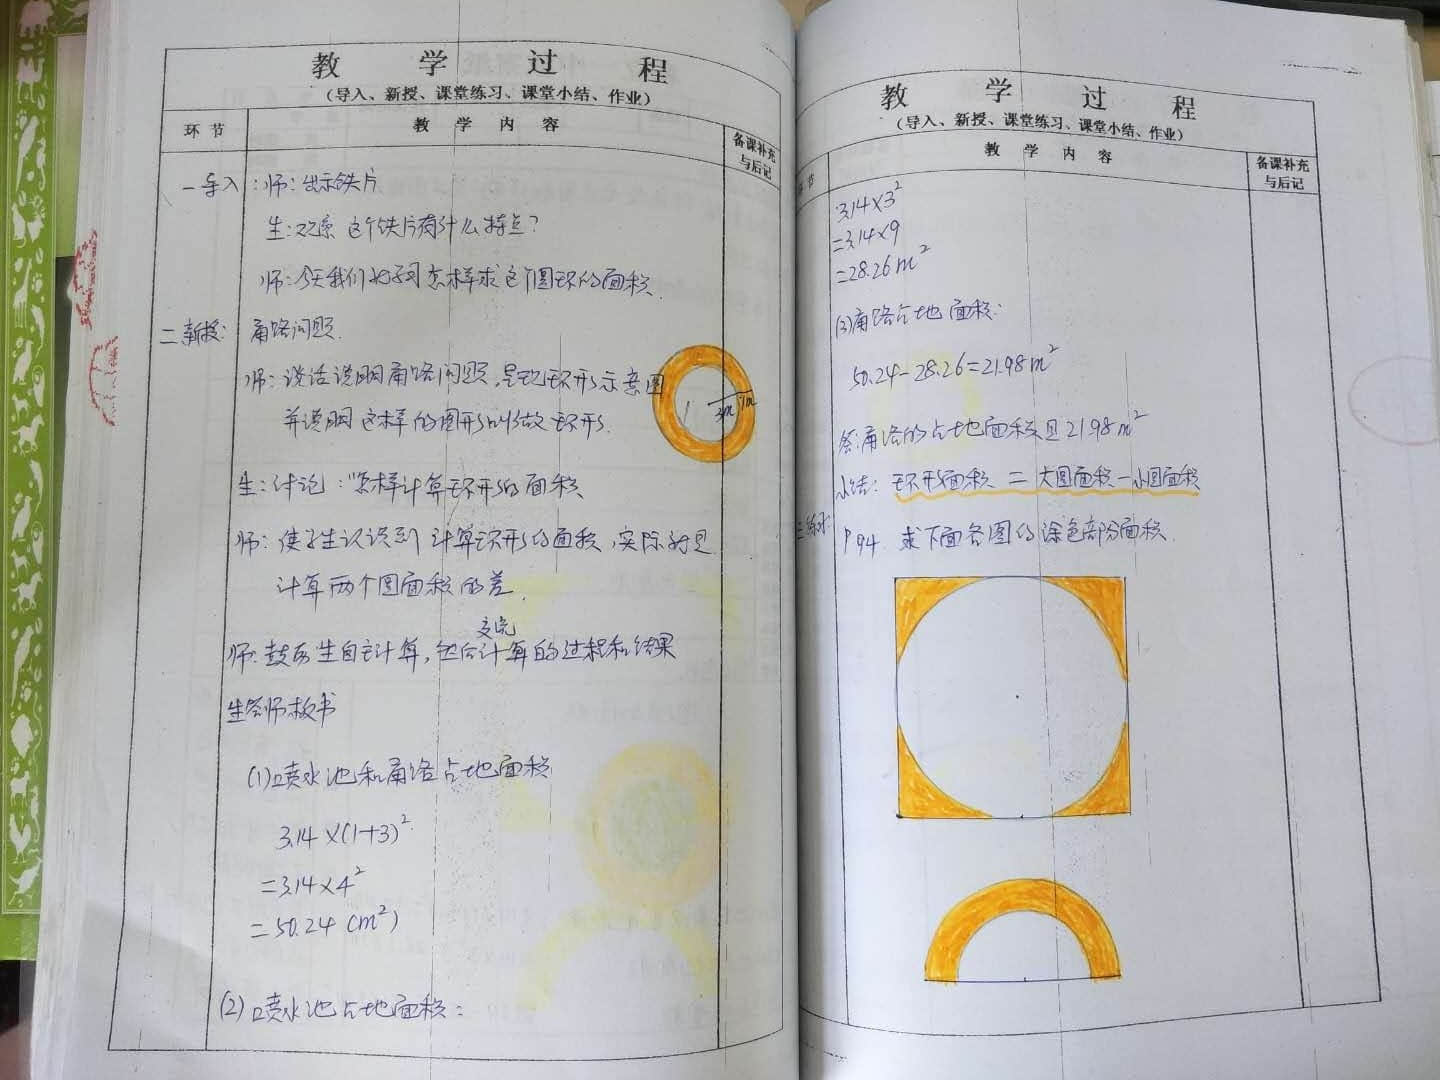 教 学 过 程
（导入、新授、课堂练习、课堂小结、作业）
环 节
教 学 内 容
备课补充
与后记
一导入：师：出示铁片
生：观察这个铁片有什么特点？
师：今天我们学习怎样求这个圆环的面积.
二新授： 甬路问题.
师：说话说明甬路问题，呈现环形示意图
并说明这样的图形叫做环形.
3m 1m
生：讨论：怎样计算环形的面积
师：使学生认识到计算环形的面积，实际就是
计算两个圆面积的差.
交流
师：鼓励生自主计算，然后计算的过程和结果
生答师板书
(1)喷水池和甬路占地面积
3.14×(1+3)²
=3.14×4²
=50.24 (m²)
(2)喷水池占地面积：
教 学 过 程
（导入、新授、课堂练习、课堂小结、作业）
节
教 学 内 容
备课补充
与后记
3.14×3²
=3.14×9
=28.26m²
(3)甬路占地面积：
50.24-28.26=21.98m²
答：甬路的占地面积是21.98m²
小结：环形面积 = 大圆面积-小圆面积
三练习：P94. 求下面各图的涂色部分面积.